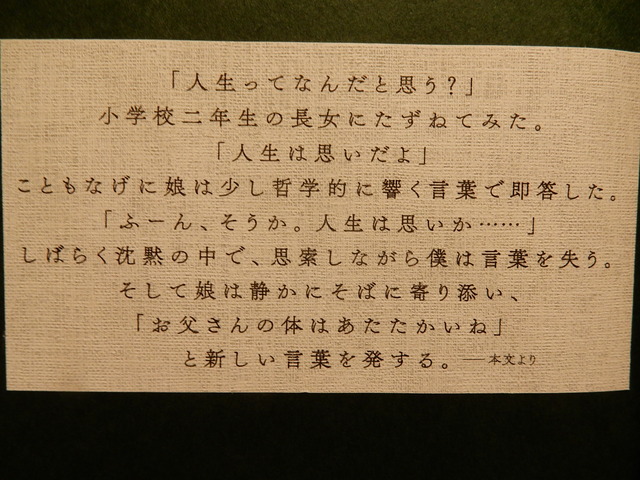 「人生ってなんだと思う？」
小学校二年生の長女にたずねてみた。
「人生は思いだよ」
こともなげに娘は少し哲学的に響く言葉で即答した。
「ふーん、そうか。人生は思いか……」
しばらく沈黙の中で、思索しながら僕は言葉を失う。
そして娘は静かにそばに寄り添い、
「お父さんの体はあたたかいね」
と新しい言葉を発する。──本文より